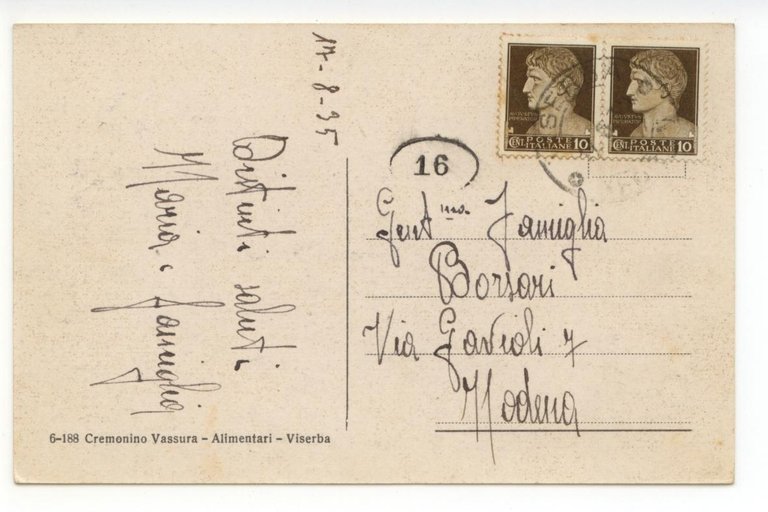 17-8-35
Distinti saluti
Maria e famiglia
16
POSTE
ITALIANE
CENT. 10
POSTE
ITALIANE
CENT. 10
Gent.ma Famiglia
Borsari
Via Gavioli 7
Modena
6-188 Cremonino Vassura - Alimentari - Viserba